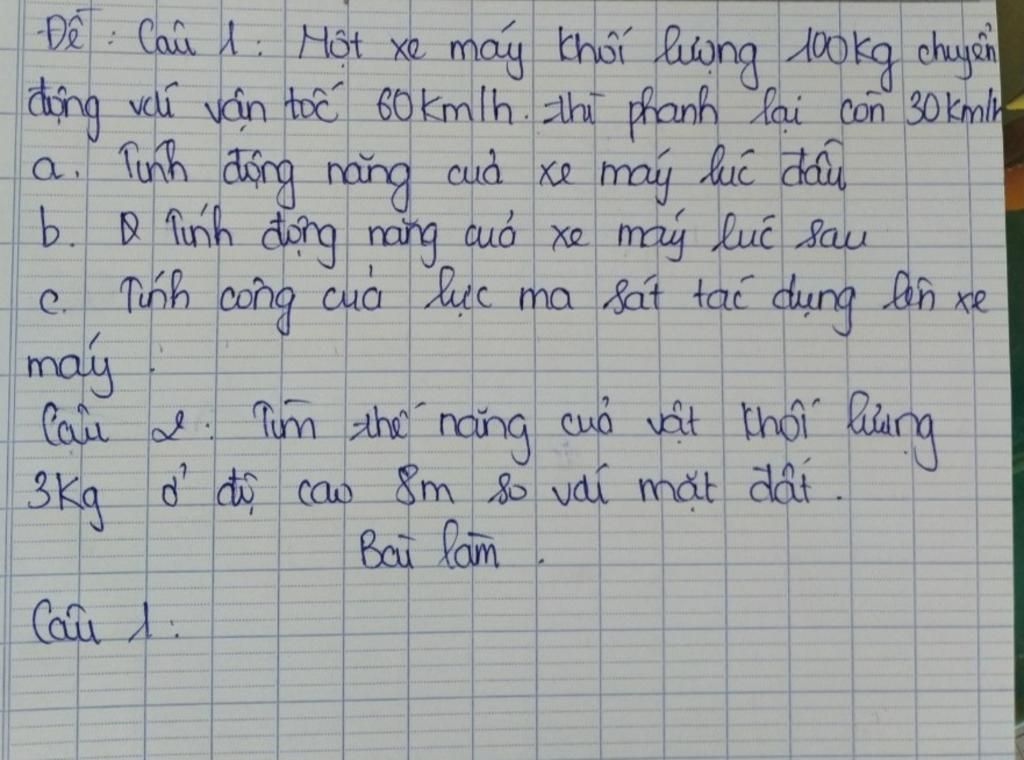 Đề : Câu 1 : Một xe máy khối lượng 100kg chuyển
động với vận tốc 60km/h. thì phanh lại còn 30km/h
a. Tính động năng của xe máy lúc đầu
b. Tính động năng của xe máy lúc sau
c. Tính công của lực ma sát tác dụng lên xe
máy .
Câu 2 : Tìm thế năng của vật khối lượng
3Kg ở độ cao 8m so với mặt đất .
Bài làm .
Câu 1 :